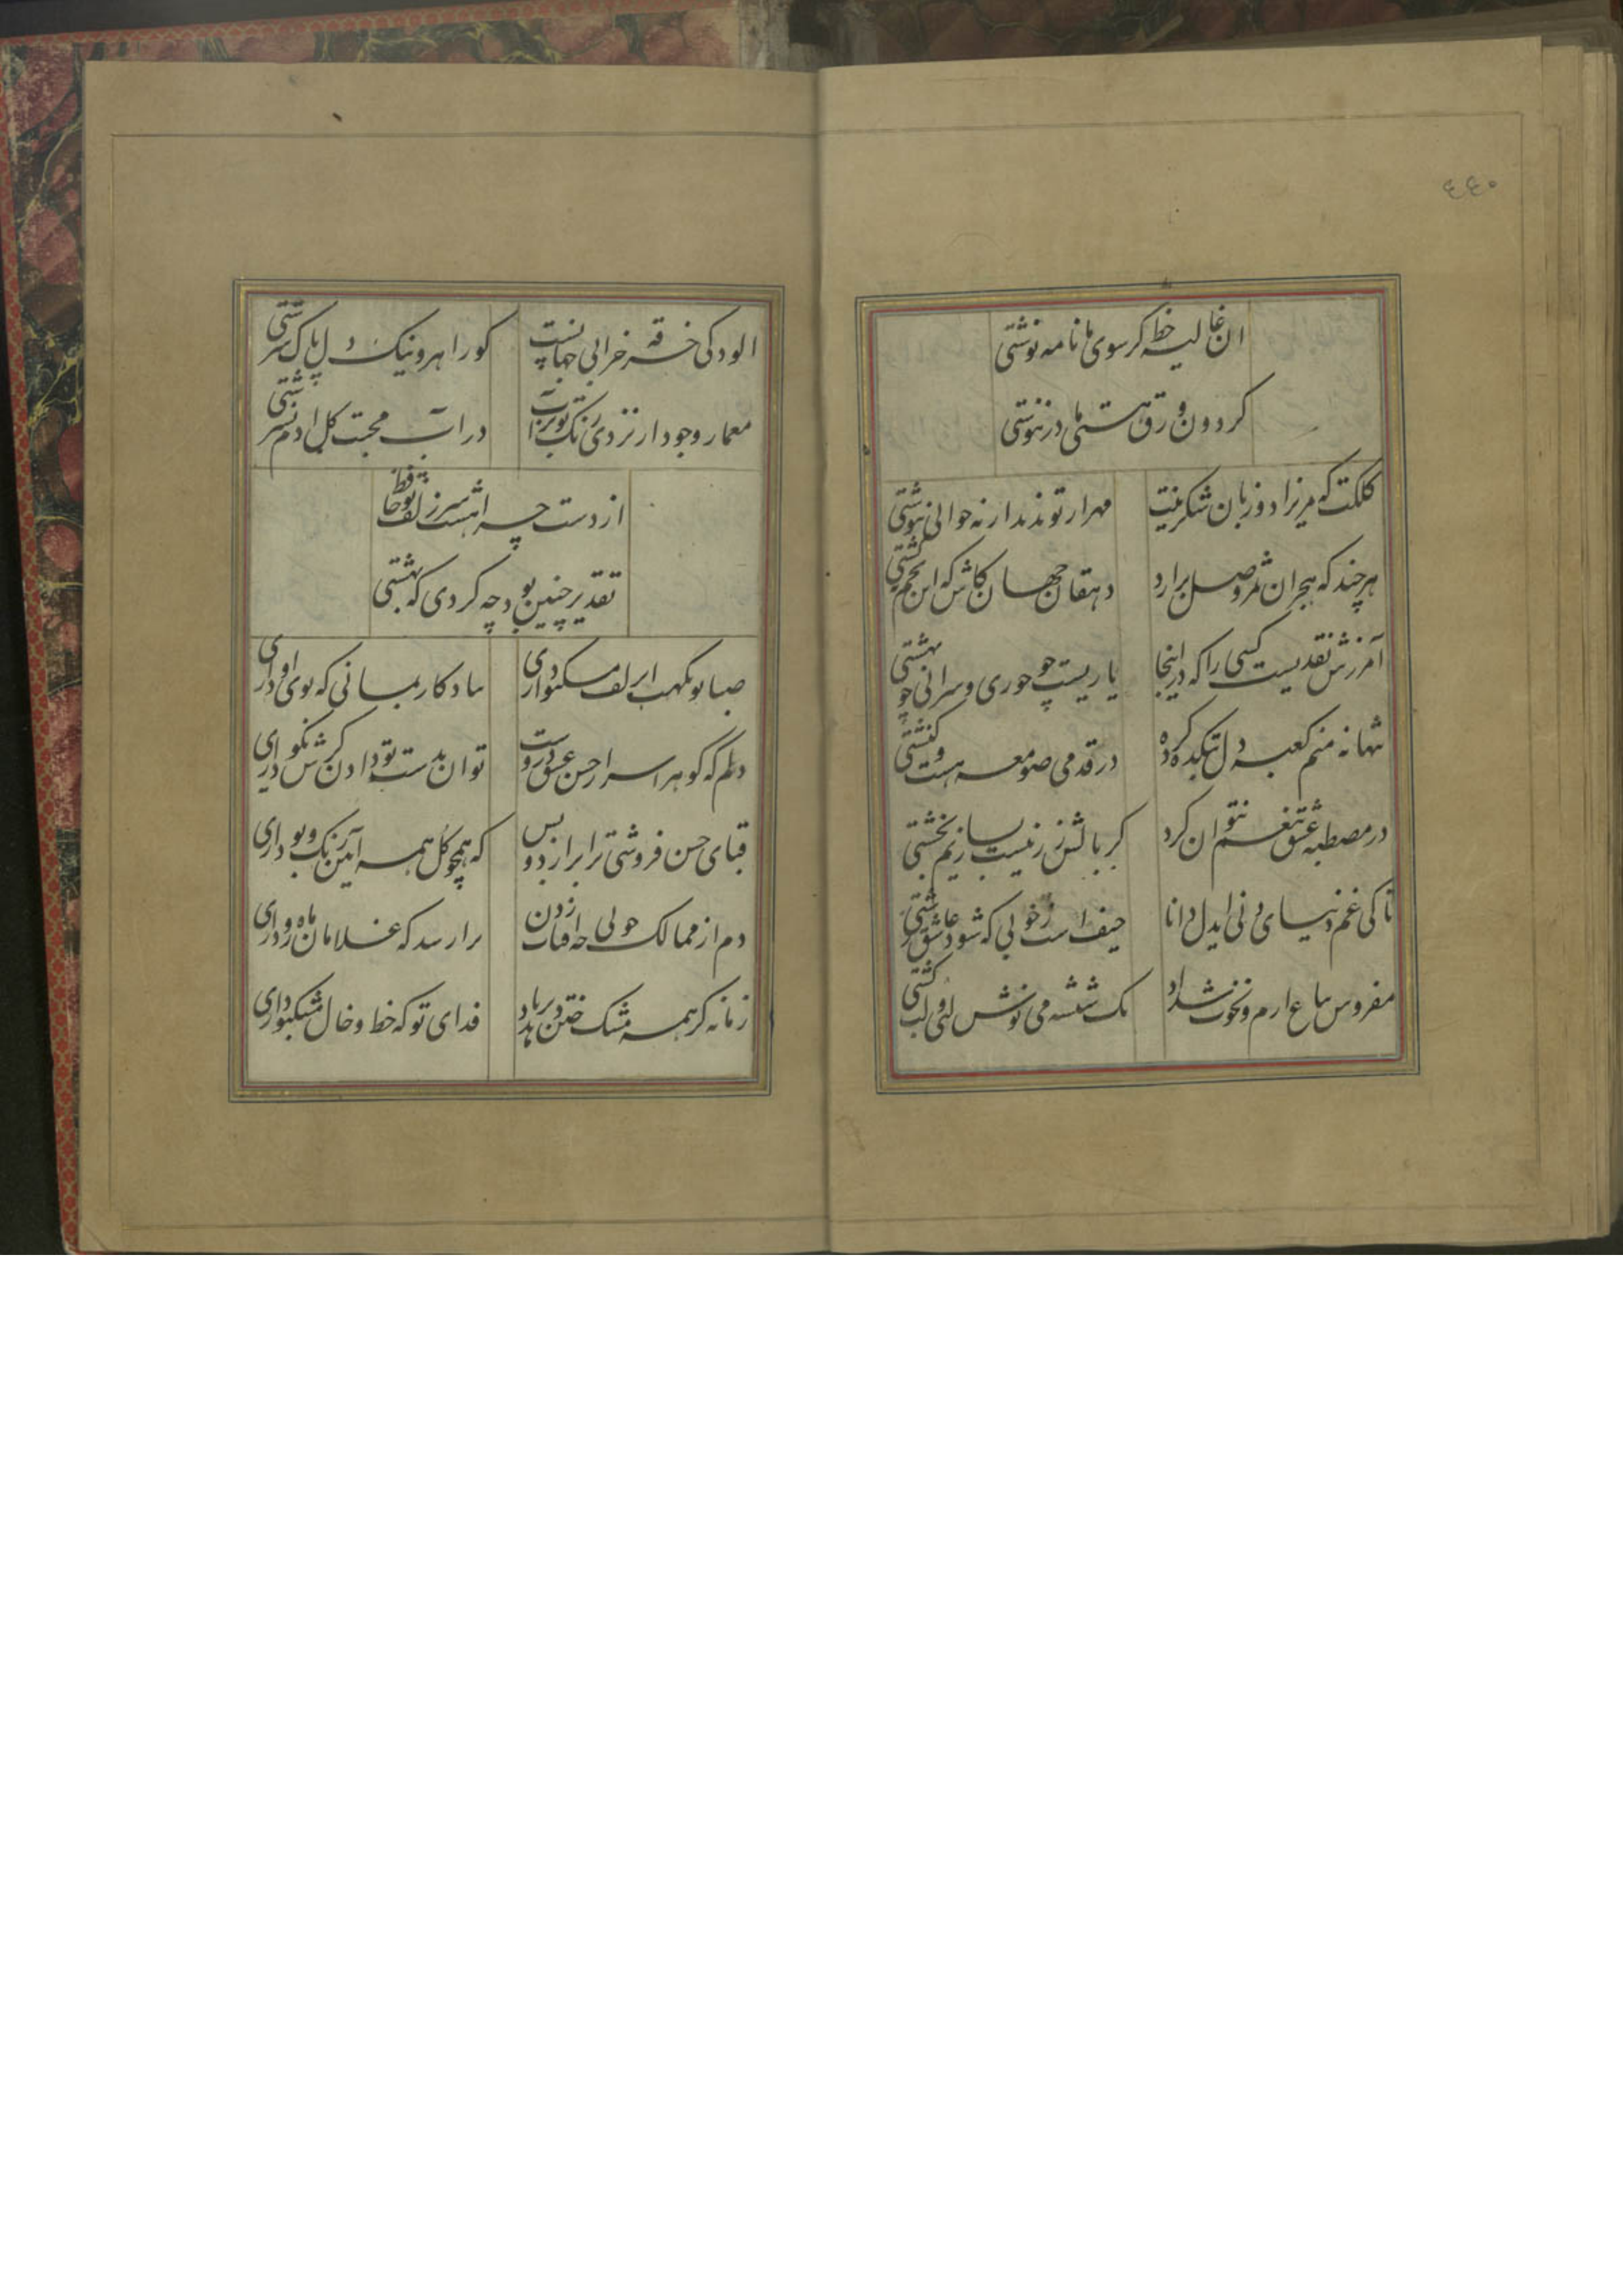 ٤٤٠
ان غالیه خط کر سوی ما نامه نوشتی
کردون ورق هستی ما درننوشتی
کلکت که مریزاد زبان شکرینت
مهر از تو ندید ار نه جوابی بنوشتی
هر چند که هجران ثمر وصل برارد
دهقان جهان کاش که این تخم نکشتی
آمرزش نقدیست کسی را که درینجا
یاریست چو حوری و سرائی چو بهشتی
تنها نه منم کعبه دل بتکده کرده
در قدمی صومعه هست و کنشتی
در مصطبه عشق تنعم نتوان کرد
کر بالش زر نیست بسازیم بخشتی
تا کی غم دنیای دنی ایدل دانا
حیف است ز خوبی که شود عاشق زشتی
مفروش بباغ ارم و نخوت شداد
یک شیشه می و نوش لبی و لب کشتی
الودکی خرقه خرابی جهانست
کو راهرو نیک دل پاک سرشتی
معمار وجود ار نزدی رنک تو بر آب
در آب محبت کل ادم نسرشتی
از دست چرا هشت سر زلف تو حافظ
تقدیر چنین بود چه کردی که بهشتی
صبا تو نکهت ان زلف مشکبو داری
بیادکار بمانی که بوی او داری
دلم که کوهر اسرار حسن عشق دروست
توان بدست تو دادن کرش نکو داری
قبای حسن فروشی ترا برازد و بس
که همچو کل همه آیین رنک و بو داری
دم از ممالک خوبی چو افتاب زدن
ترا رسد که غلامان ماه رو داری
زمانه کر همه مشک ختن دهد بر باد
فدای تو که خط و خال مشکبو داری